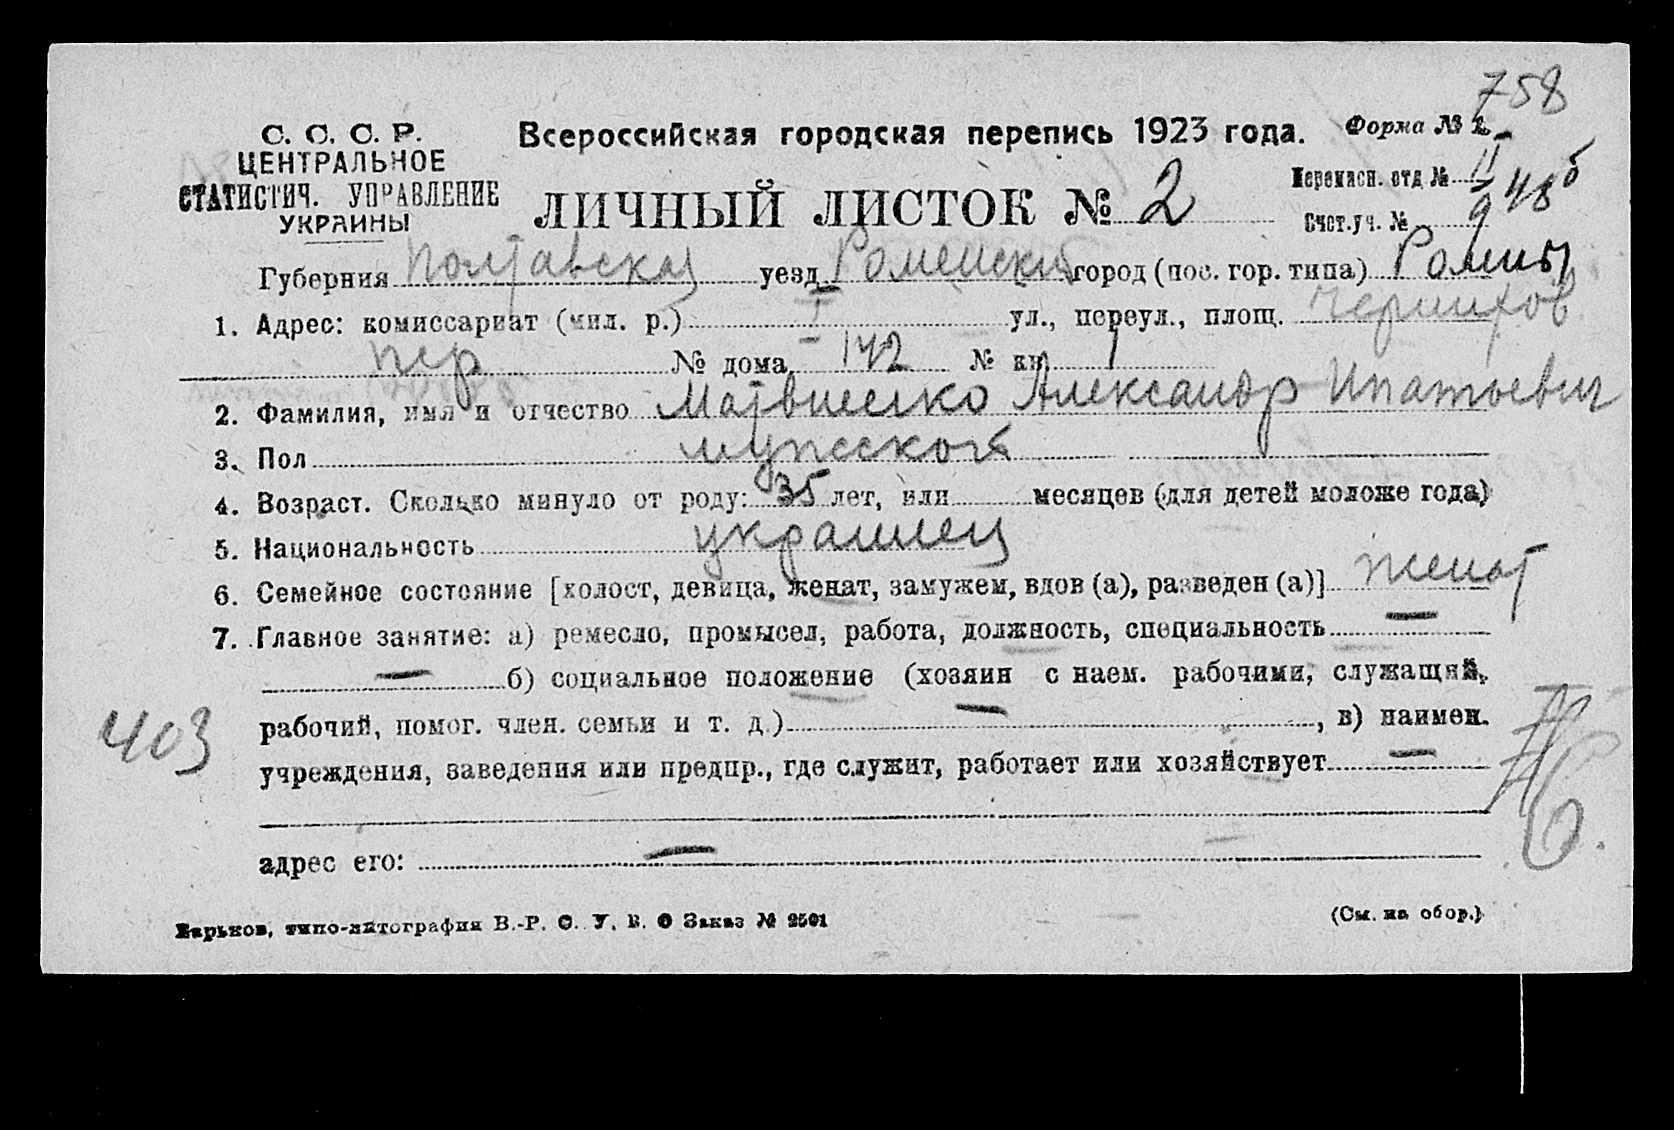 758
С. С. С. Р.
ЦЕНТРАЛЬНОЕ
СТАТИСТИЧ. УПРАВЛЕНИЕ
УКРАИНЫ
Всероссийская городская перепись 1923 года.
Форма №
ЛИЧНЫЙ ЛИСТОК № 2
Переписн. отд № II
Счет. уч. № 9
Губерния Полтавская уезд Роменский город (пос. гор. типа) Ромны
1. Адрес: комиссариат (мил. р.) I ул., переул., площ. Чернигов
пер № дома 142 № кв. 1
2. Фамилия, имя и отчество Матвиенко Александр Ипатьевич
3. Пол мужской
4. Возраст. Сколько минуло от роду: 35 лет, или месяцев (для детей моложе года)
5. Национальность украинец
6. Семейное состояние [холост, девица, женат, замужем, вдов (а), разведен (а)] женат
7. Главное занятие: а) ремесло, промысел, работа, должность, специальность —
— б) социальное положение (хозяин с наем. рабочими, служащий,
рабочий, помог. член. семьи и т. д.) — , в) наимен.
403
учреждения, заведения или предпр., где служит, работает или хозяйствует —
адрес его: —
Харьков, типо-литография В.-Р. С. У. В. О Заказ № 2501
(См. на обор.)